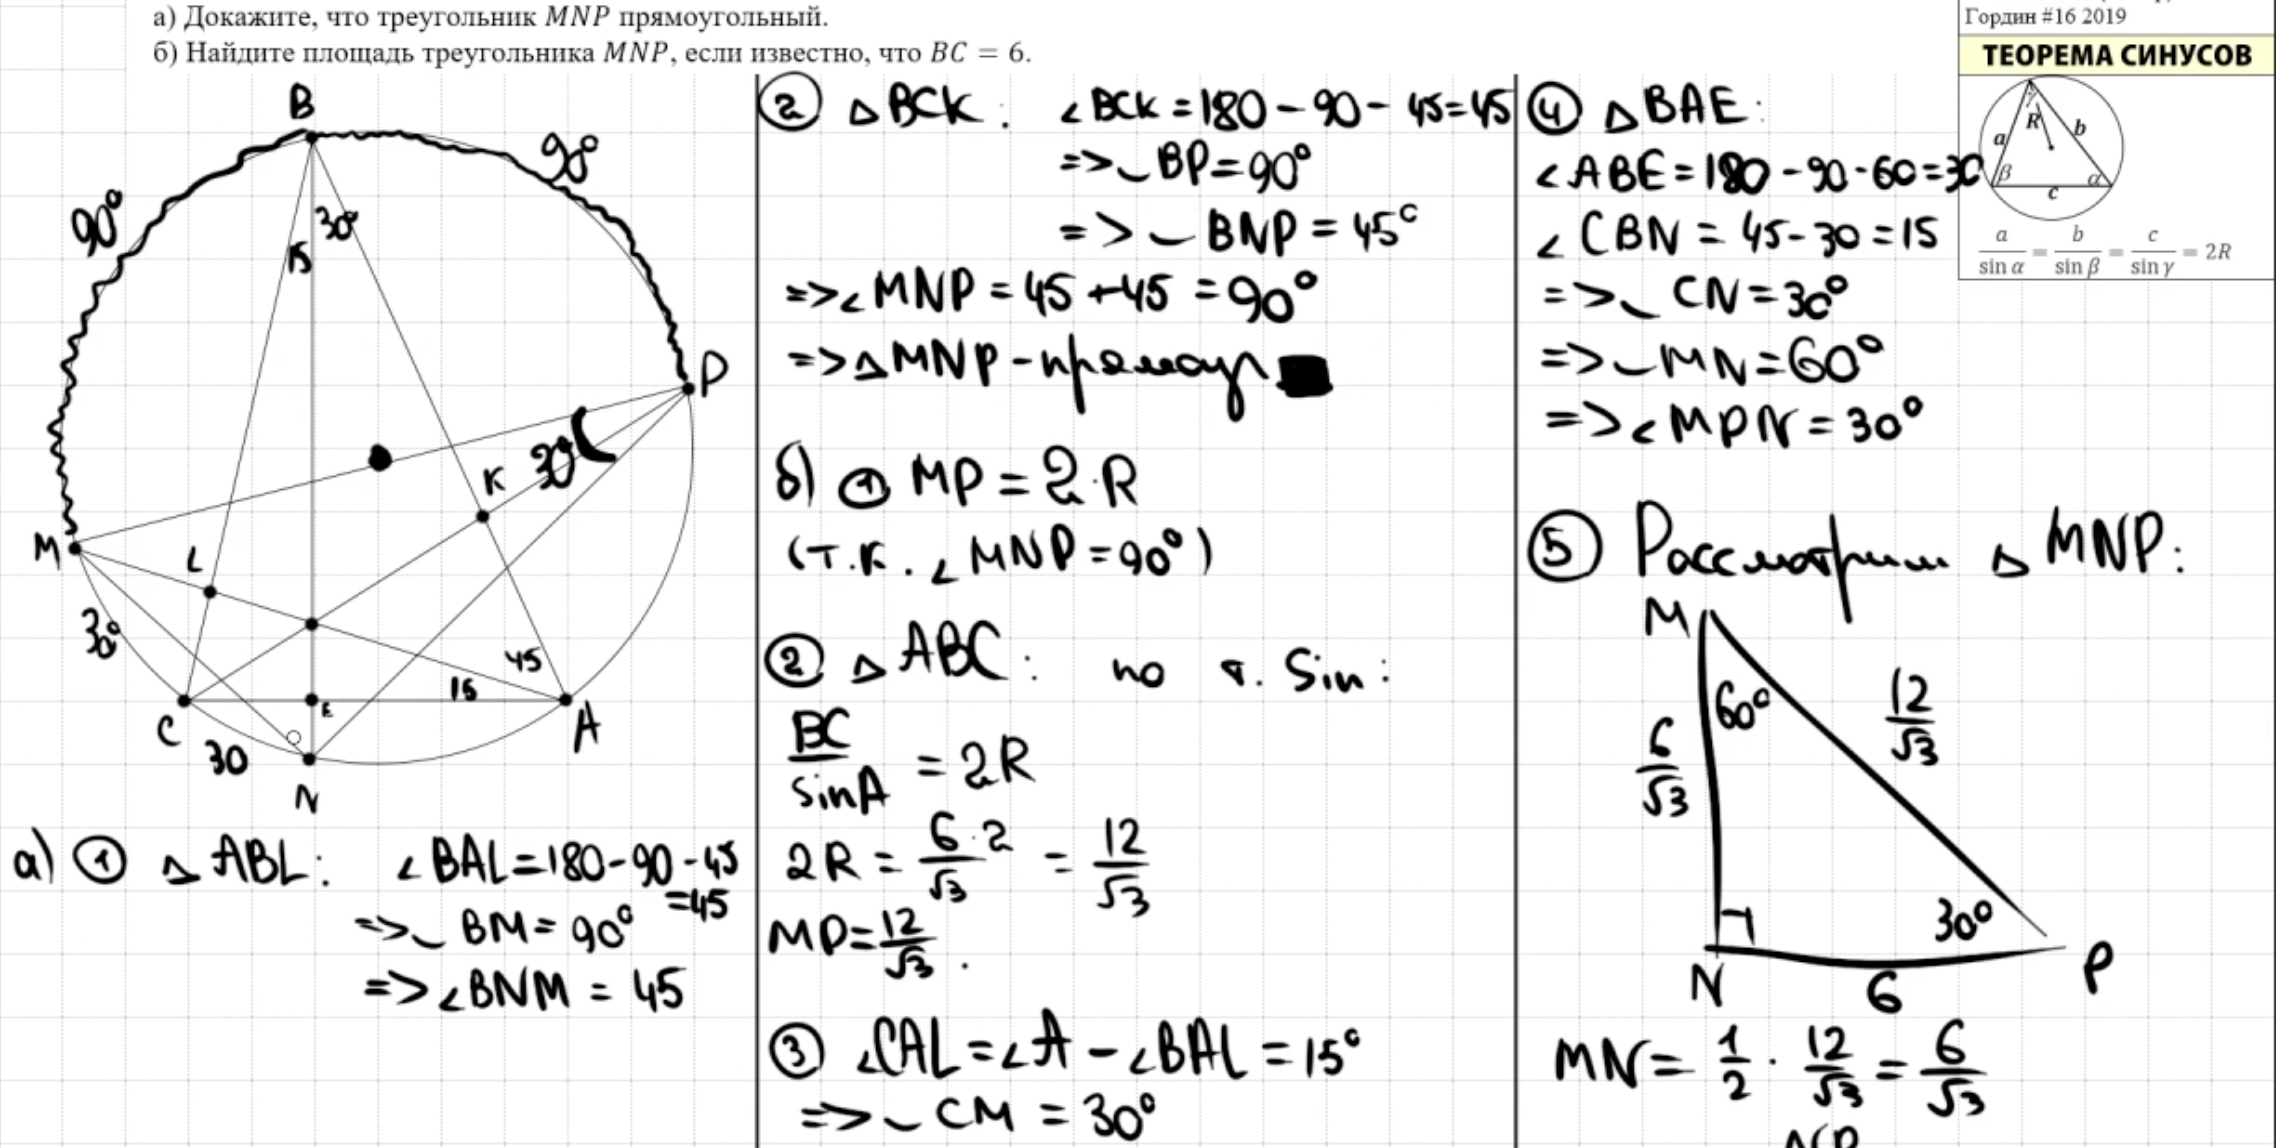 а) Докажите, что треугольник MNP прямоугольный.
б) Найдите площадь треугольника MNP, если известно, что BC = 6.
Гордин #16 2019
ТЕОРЕМА СИНУСОВ
R
a
b
β
α
c
γ
a/sin α = b/sin β = c/sin γ = 2R
B
90°
90°
30°
15
P
K
30°
M
L
30°
45
15
E
C
A
30
N
а) ① △ ABL: ∠BAL=180-90-45
=45
=> ◡ BM= 90°
=> ∠BNM = 45
② △ BCK: ∠BCK =180-90-45=45
=> ◡ BP=90°
=> ◡ BNP = 45°
=> ∠MNP = 45+45 = 90°
=> △MNP - прямоуг ■
б) ① MP = 2·R
(т.к. ∠MNP=90°)
② △ABC: по т. Sin:
BC/sinA = 2R
2R = 6·2/√3 = 12/√3
MP=12/√3.
③ ∠CAL=∠A-∠BAL=15°
=> ◡ CM = 30°
④ △BAE:
∠ABE=180-90-60=30
∠CBN = 45-30=15
=> ◡ CN=30°
=> ◡ MN=60°
=> ∠MPN=30°
⑤ Рассмотрим △ MNP:
M
60°
12/√3
6/√3
30°
N
6
P
MN= 1/2 · 12/√3 = 6/√3